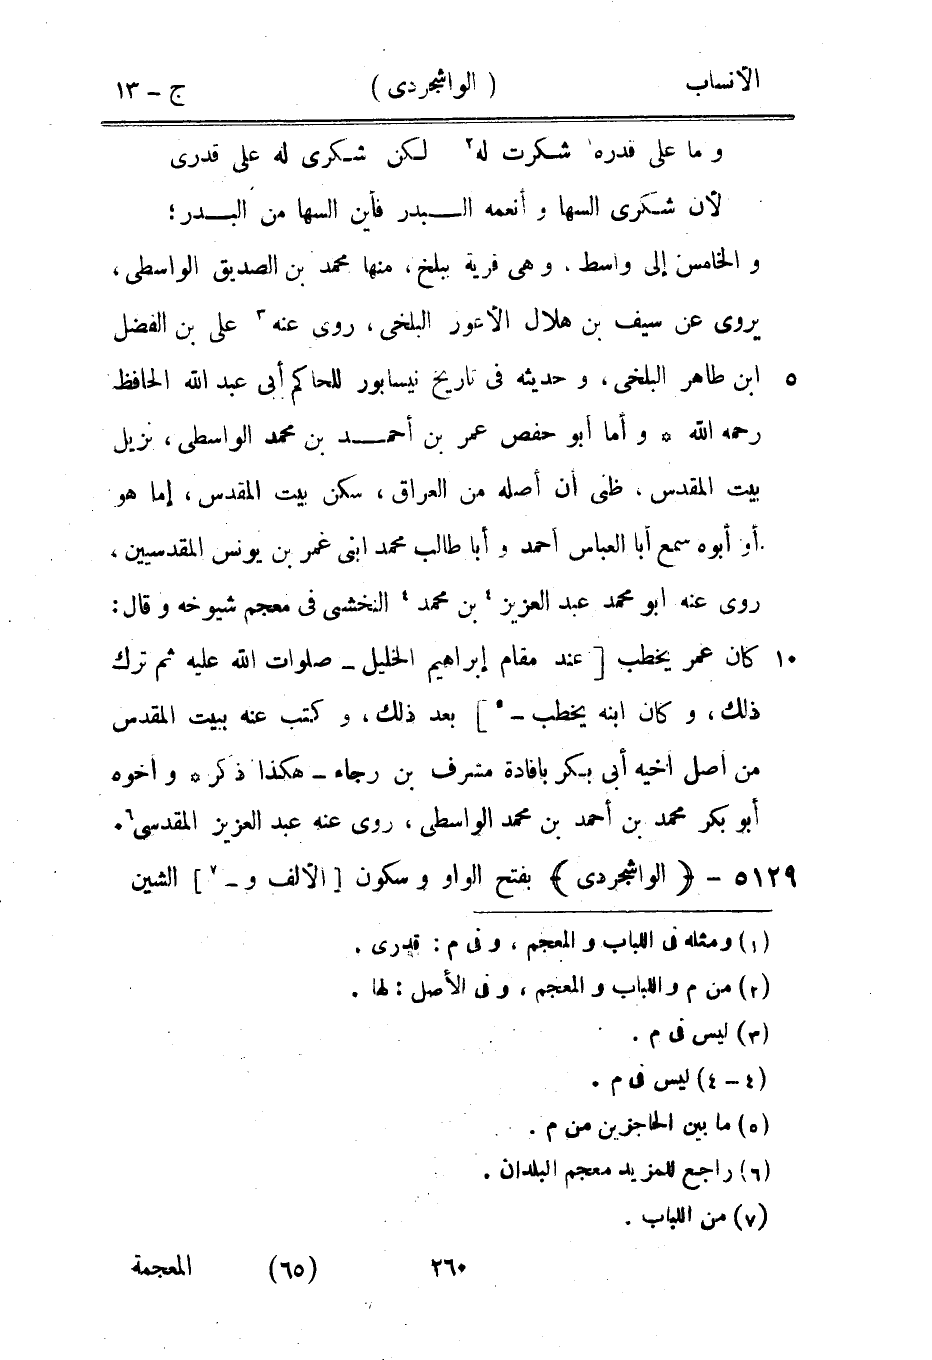 الأنساب ( الواشجردى ) ج - ١٣
و ما على قدره١ شكرت له٢ لكن شكرى له على قدرى
لأن شكرى السها و أنعمه البدر فأين السها من البدر؛
و الخامس إلى واسط . و هى قرية ببلخ، منها محمد بن الصديق الواسطى،
يروى عن سيف بن هلال الأعور البلخى، روى عنه٣ على بن الفضل
٥ ابن طاهر البلخى، و حديثه فى تاريخ نيسابور للحاكم أبى عبد الله الحافظ
رحمه الله * و أما أبو حفص عمر بن أحمد بن محمد الواسطى، نزيل
بيت المقدس، ظنى أن أصله من العراق، سكن بيت المقدس، إما هو
أو أبوه سمع أبا العباس أحمد و أبا طالب محمد ابنى عمر بن يونس المقدسيين،
روى عنه ابو محمد عبد العزيز٤ بن محمد٤ النخشبى فى معجم شيوخه و قال:
١٠ كان عمر يخطب [ عند مقام إبراهيم الخليل - صلوات الله عليه ثم ترك
ذلك، و كان ابنه يخطب -٥ ] بعد ذلك، و كتب عنه ببيت المقدس
من أصل اخيه أبى بكر بافادة مشرف بن رجاء - هكذا ذكر * و اخوه
أبو بكر محمد بن أحمد بن محمد الواسطى، روى عنه عبد العزيز المقدسى٦.
٥١٢٩ - ﴿ الواشجردى ﴾ بفتح الواو و سكون [ الألف و -٧ ] الشين
(١) ومثله فى اللباب و المعجم ، و فى م : قدرى .
(٢) من م و اللباب و المعجم ، و فى الأصل : لها .
(٣) ليس فى م .
(٤ - ٤) ليس فى م .
(٥) ما بين الحاجزين من م .
(٦) راجع للمزيد معجم البلدان .
(٧) من اللباب .
٢٦٠ (٦٥) المعجمة